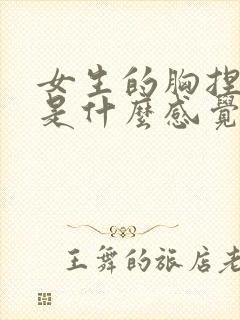 女生的胸捏
是什麼感覺
王舞的旅店老